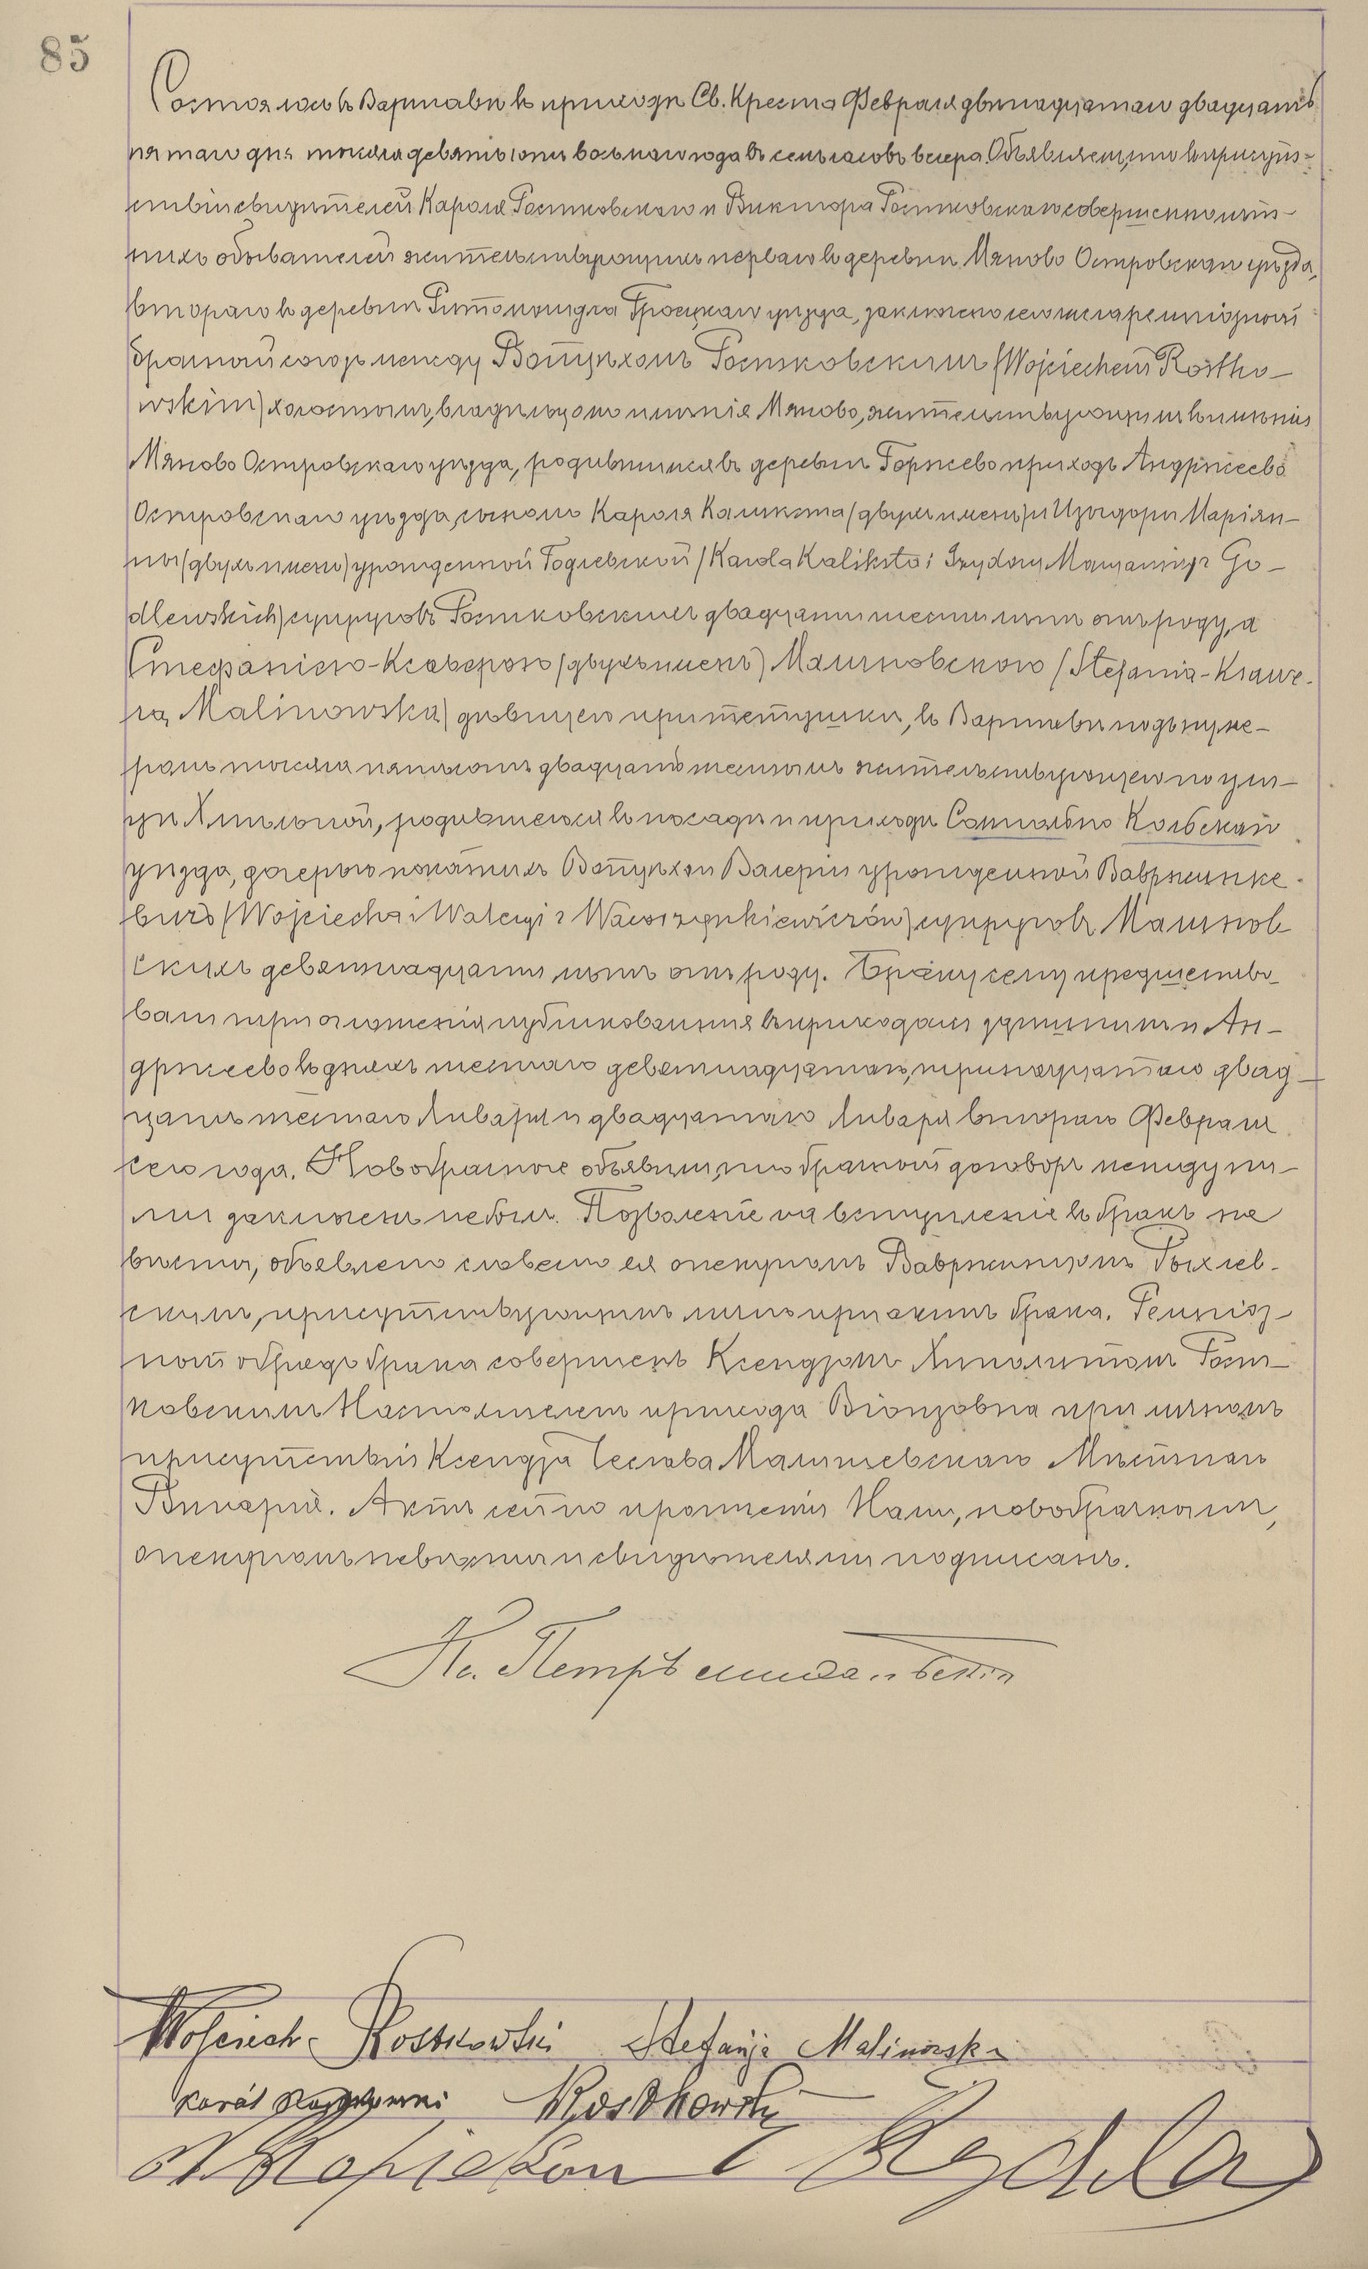 85
Состоялось въ Варшавѣ въ приходѣ Св. Креста Февраля двѣнадцатаго двадцать
пятаго дня тысяча девятьсотъ восьмаго года въ семь часовъ вечера. Объявляемъ, что въ присут-
ствіи свидѣтелей Кароля Ростковскаго и Виктора Ростковскаго совершеннолѣт-
нихъ обывателей жительствующихъ перваго въ деревни Мяново Островскаго уѣзда,
втораго въ деревни Гроецкаго уѣзда, заключено сего числа религіозный
брачный союзъ между Войцѣхомъ Ростковскимъ (Wojciechem Rostko-
wskim) холостымъ, владѣльцомъ имѣнія Мяново, жительствующимъ въ имѣніи
Мяново Островскаго уѣзда, родившимся въ деревнѣ Горжеево приходъ Андржеево
Островскаго уѣзда, сыномъ Кароля Каликста (двухъ именъ) и Изыдоры Маріан-
ны (двухъ именъ) урожденной Годлевской (Karola Kaliksta i Izydory Maryanny z Go-
dlewskich) супруговъ Ростковскихъ двадцати шести лѣтъ отъ роду, а
Стефаніею-Ксаверою (двухъ именъ) Малиновскою (Stefania-Ksawe-
rą Malinowską) дѣвицею при тетушки, въ Варшавѣ подъ нуме-
ромъ тысяча пятьсотъ двадцать шестымъ жительствующею по ули-
цѣ Хмельной, родившеюся въ посадѣ и приходѣ Сомпольно Кольскаго
уѣзда, дочерью покойныхъ Войцѣха и Валеріи урожденной Вавржинке-
вичъ (Wojciecha i Waleryi z Wawrzynkiewiczów) супруговъ Малинов-
скихъ девятнадцати лѣтъ отъ роду. Браку сему предшество-
вали три оглашенія публикованныя въ приходахъ здѣшнимъ и Ан-
држеево въ дняхъ шестаго девятнадцатаго, тринадцатаго двад-
цать шестаго Января и двадцатаго Января втораго Февраля
сего года. Новобрачные объявили, что брачный договоръ между ни-
ми заключенъ небылъ. Позволеніе на вступленіе въ бракъ не-
вѣсты, объявлено словесно ея опекуномъ Вавржинцомъ Рыхлев-
скимъ, присутствующимъ лично при актѣ брака. Религіоз-
ный обрядъ брака совершенъ Ксендзомъ Ипполитомъ Рост-
ковскимъ Настоятелемъ прихода Віонзовна при личномъ
присутствіи Ксендза Чеслава Малишевскаго Мѣстнаго
Викарія. Актъ сей по прочтеніи Нами, новобрачными,
опекуномъ невѣсты и свидѣтелями подписанъ.
Кс. Петръ
Wojciech Rostkowski Stefanja Malinowska
Karol Rostkowski WRostkowski